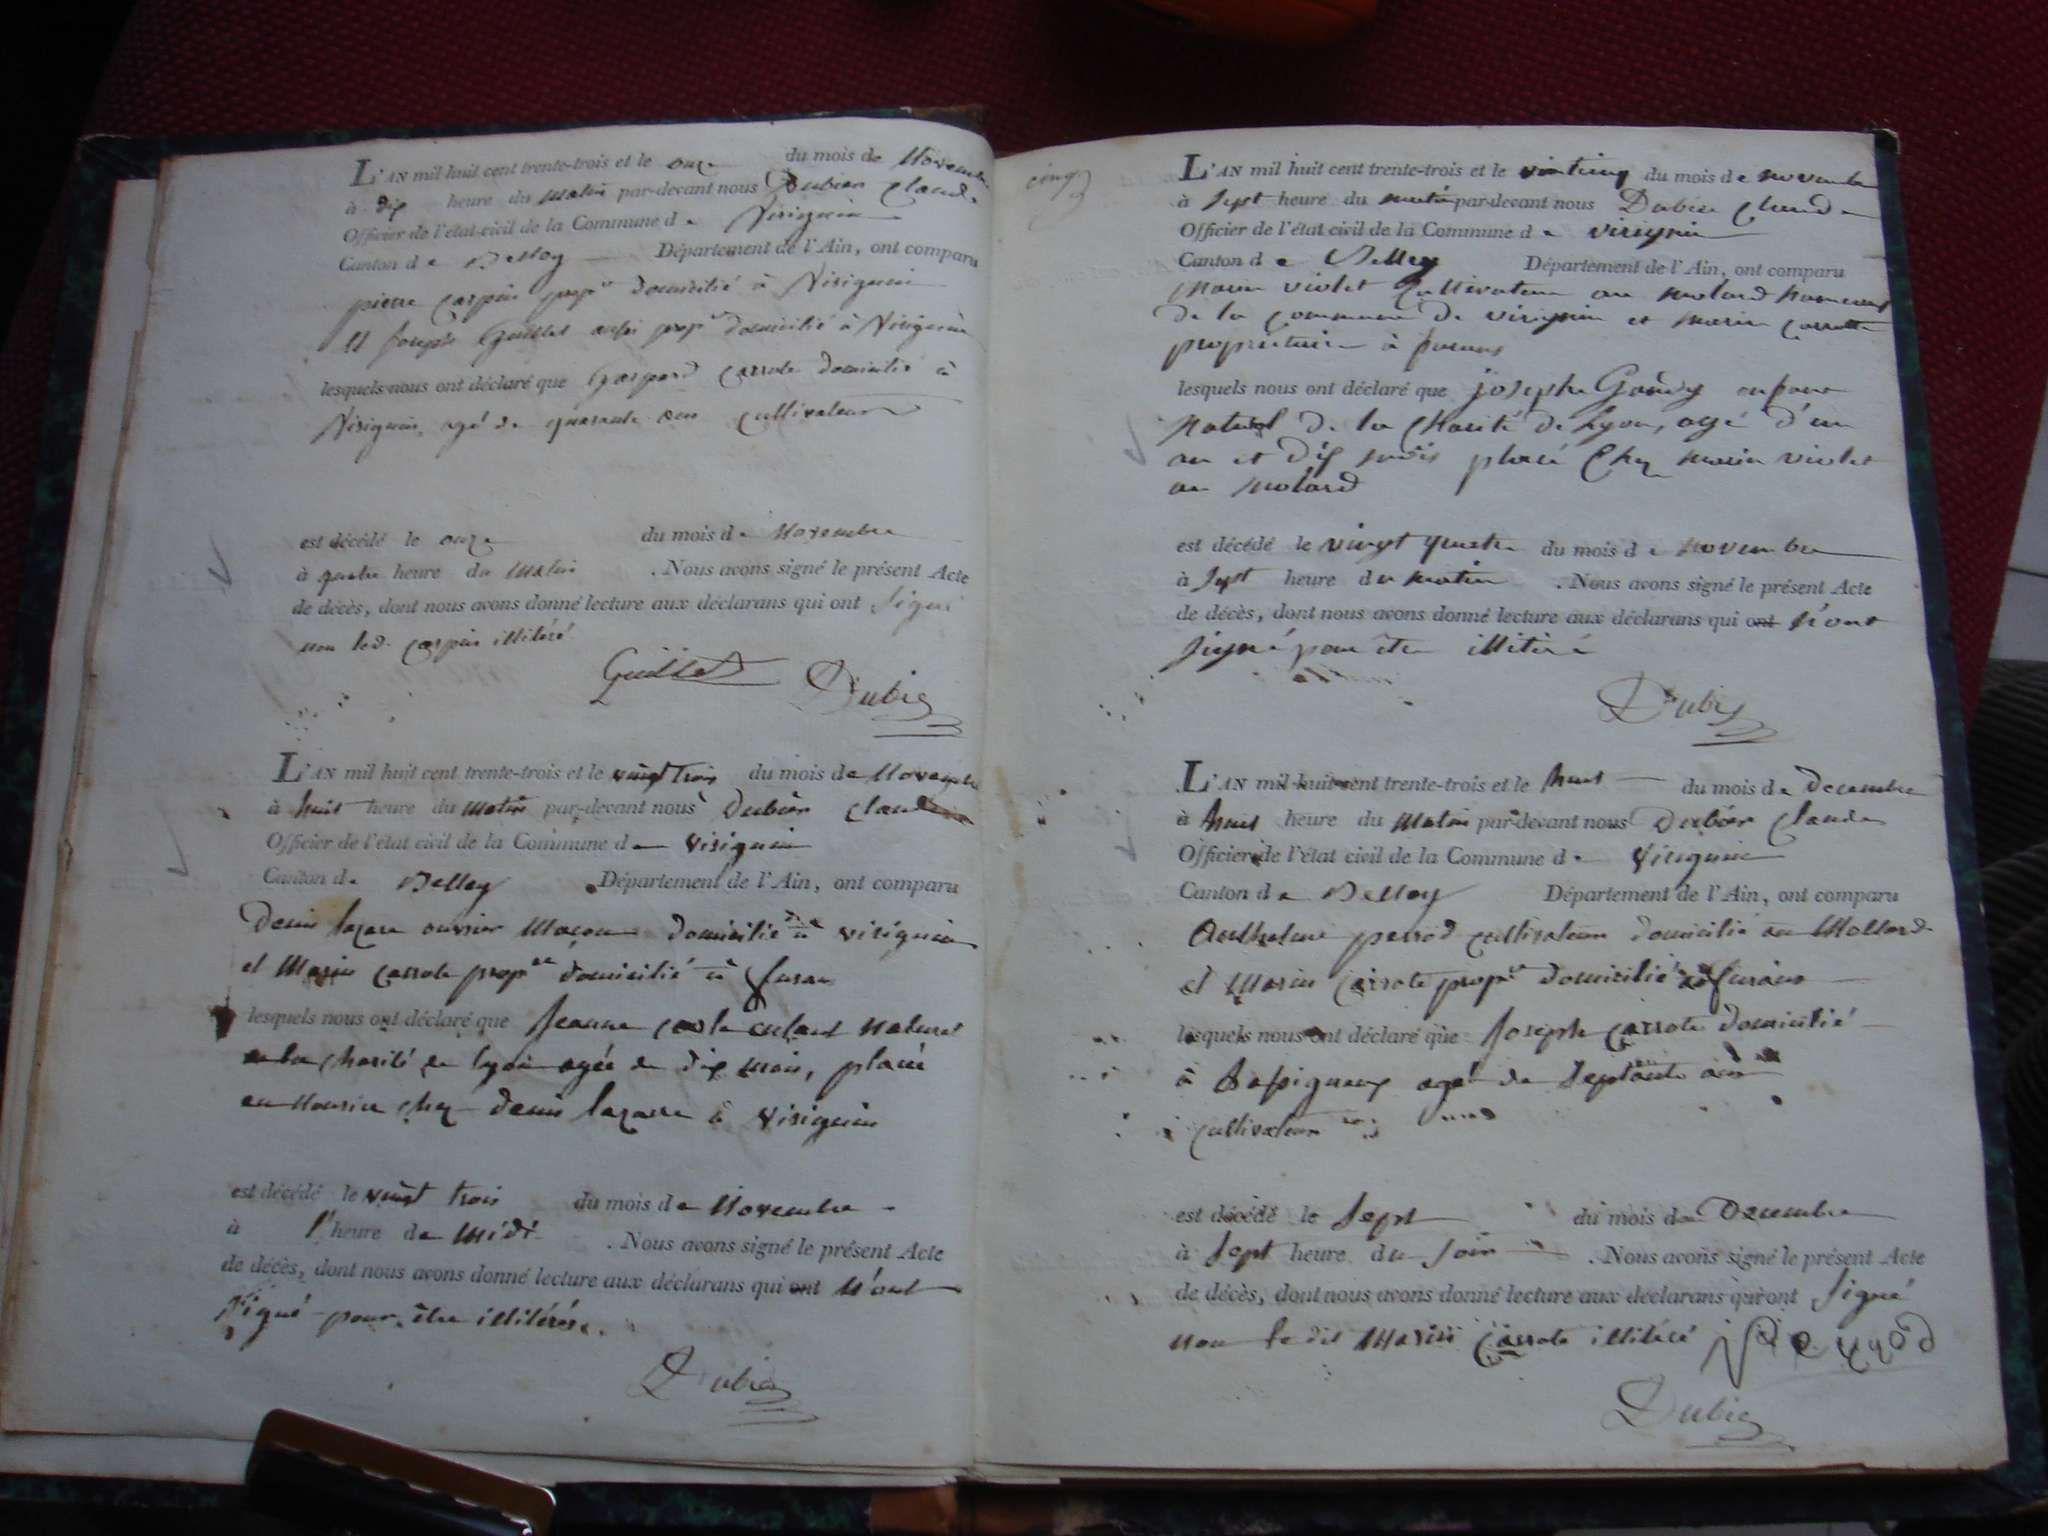 L'AN mil huit cent trente-trois et le onze du mois de Novembre
à dix heure du matin par-devant nous Dubier Claude
Officier de l'état civil de la Commune de Virignin
Canton de Belley Département de l'Ain, ont comparu
pierre carpin propre domicilié à Virignin
et joseph Guillet aussi propre domicilié à Virignin
lesquels nous ont déclaré que Gaspard carrote domicilié à
Virignin agé de quarante ans cultivateur
est décédé le onze du mois de Novembre
à quatre heure du Matin . Nous avons signé le présent Acte
de décès, dont nous avons donné lecture aux déclarans qui ont signé
non led. carpin illitéré
Guillet Dubier
L'AN mil huit cent trente-trois et le vingt trois du mois de Novembre
à huit heure du matin par-devant nous Dubier Claude
Officier de l'état civil de la Commune de Virignin
Canton de Belley Département de l'Ain, ont comparu
Denis lazare ouvrier Maçon domicilié à virignin
et Marin carrote propre domicilié à furans
lesquels nous ont déclaré que Jeanne enfant naturel
de la charité de lyon agée de dix mois, placée
en nourice chez denis lazare à virignin
est décédé le vingt trois du mois de Novembre
à l'heure de midi . Nous avons signé le présent Acte
de décès, dont nous avons donné lecture aux déclarans qui ont n'ont
signé pour être illitérés.
Dubier
cinq
L'AN mil huit cent trente-trois et le vintcinq du mois de novembre
à sept heure du matin par-devant nous Dubier Claude
Officier de l'état civil de la Commune de virignin
Canton de Belley Département de l'Ain, ont comparu
Marin violet Cultivateur au molard hameau
de la commune de virignin et marin carrotte
propriétaire à furans
lesquels nous ont déclaré que joseph enfant
naturel de la charité de Lyon, agé d'un
an et dix mois placé chez marin violet
au molard
est décédé le vingt quatre du mois de novembre
à sept heure du matin . Nous avons signé le présent Acte
de décès, dont nous avons donné lecture aux déclarans qui ont n'ont
signé pour être illitéré
Dubier
L'AN mil huit cent trente-trois et le huit du mois de Decembre
à huit heure du matin par-devant nous Dubier Claude
Officier de l'état civil de la Commune de Virignin
Canton de Belley Département de l'Ain, ont comparu
Anthelme perrod cultivateur domicilié au Mollard
et Marin carrote propre domicilié à furans
lesquels nous ont déclaré que Joseph carrote domicilié
à agé de septante ans
cultivateur
est décédé le sept du mois de Decembre
à sept heure du soir . Nous avons signé le présent Acte
de décès, dont nous avons donné lecture aux déclarans qui ont signé
non le dit Marin carrote illitéré
Dubier